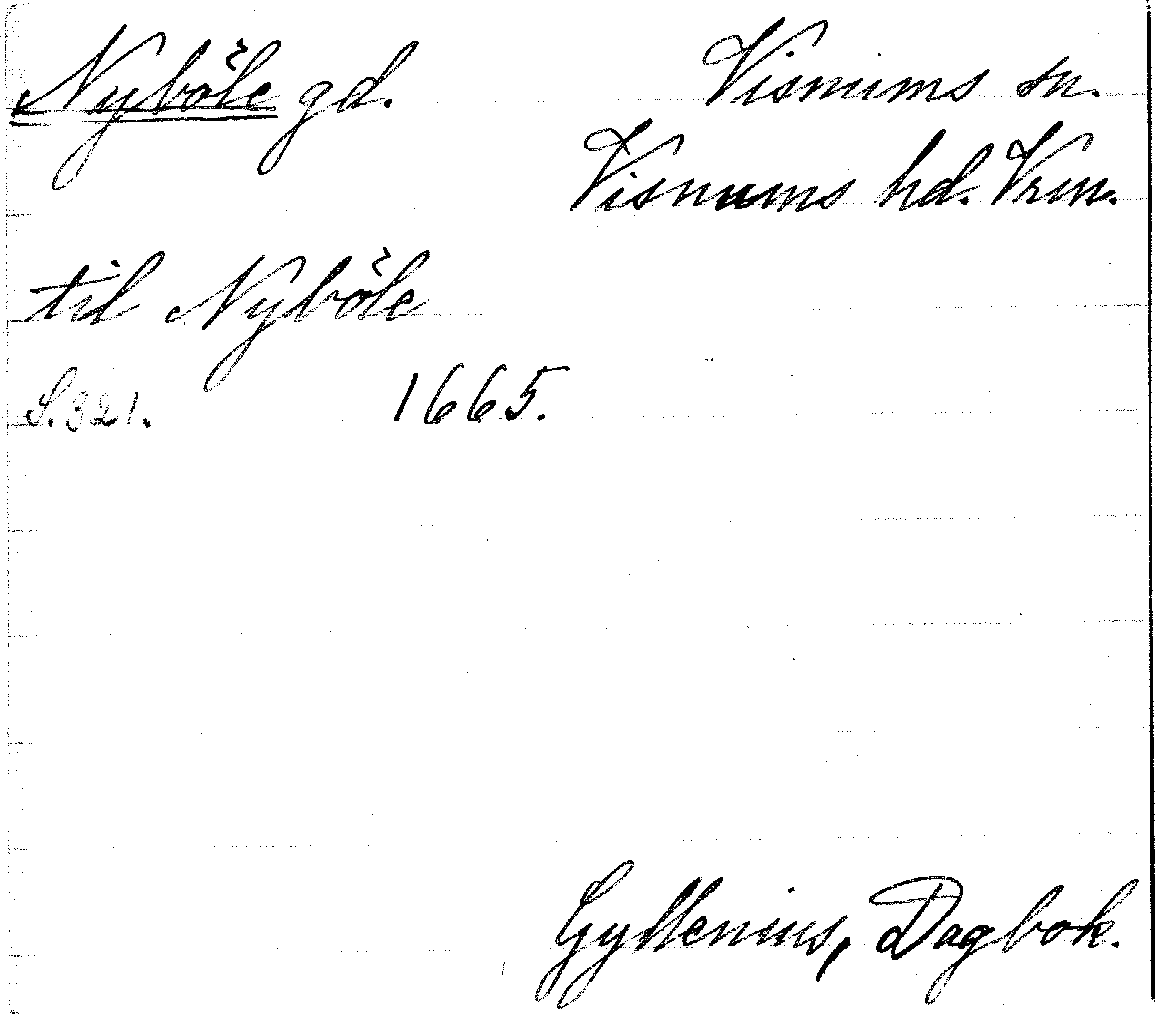 Nyböle gd. Visnums sn.
Visnums hd. Vrm.
til Nyböle
S. 321. 1665.
Gyllenius, Dagbok.